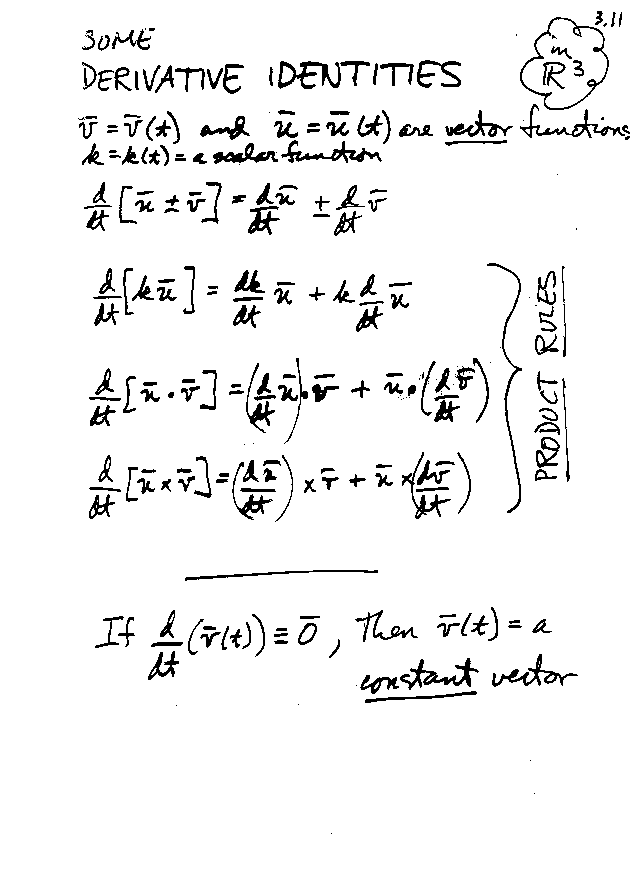 3.11
SOME
in
ℝ³
DERIVATIVE IDENTITIES
v̄ = v̄(t) and ū = ū(t) are vector functions
k = k(t) = a scalar function
d/dt [ū ± v̄] = d/dt ū ± d/dt v̄
d/dt [k ū] = dk/dt ū + k d/dt ū
d/dt [ū · v̄] = (d/dt ū) · v̄ + ū · (d/dt v̄)
d/dt [ū × v̄] = (dū/dt) × v̄ + ū × (dv̄/dt)
PRODUCT RULES
If d/dt (v̄(t)) ≡ 0̄, Then v̄(t) = a
constant vector